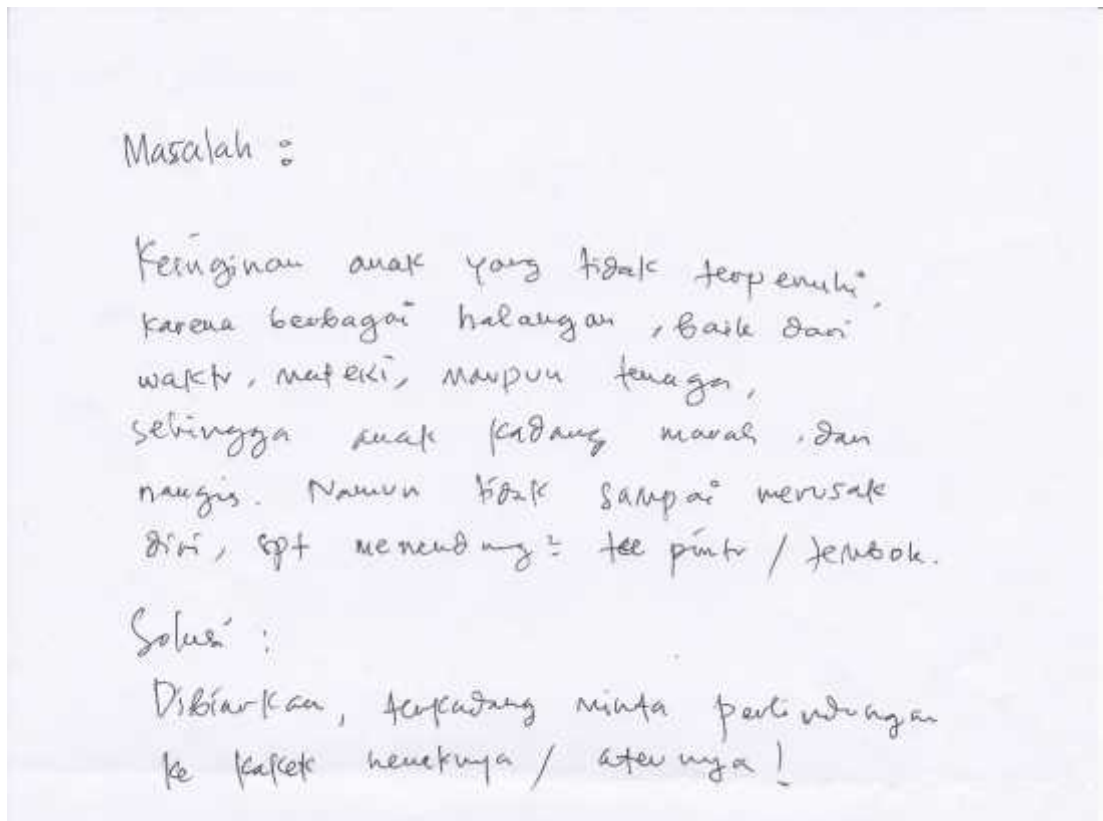 Masalah :
Keinginan anak yang tidak terpenuhi,
karena berbagai halangan, baik dari
waktu, materi, maupun tenaga,
sehingga anak kadang marah, dan
nangis. Namun tidak sampai merusak
diri, spt menendang² ke pintu / tembok.
Solusi :
Dibiarkan, terkadang minta perlindungan
ke kakek neneknya /